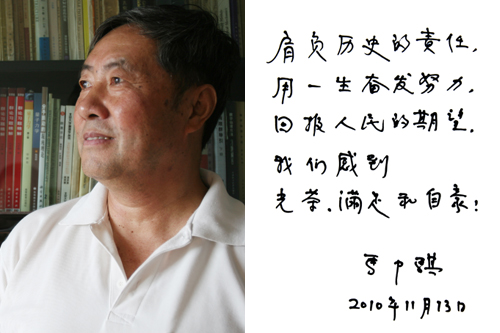 肩负历史的责任,
用一生奋发努力,
回报人民的期望,
我们感到
光荣、满足和自豪!
2010年11月13日